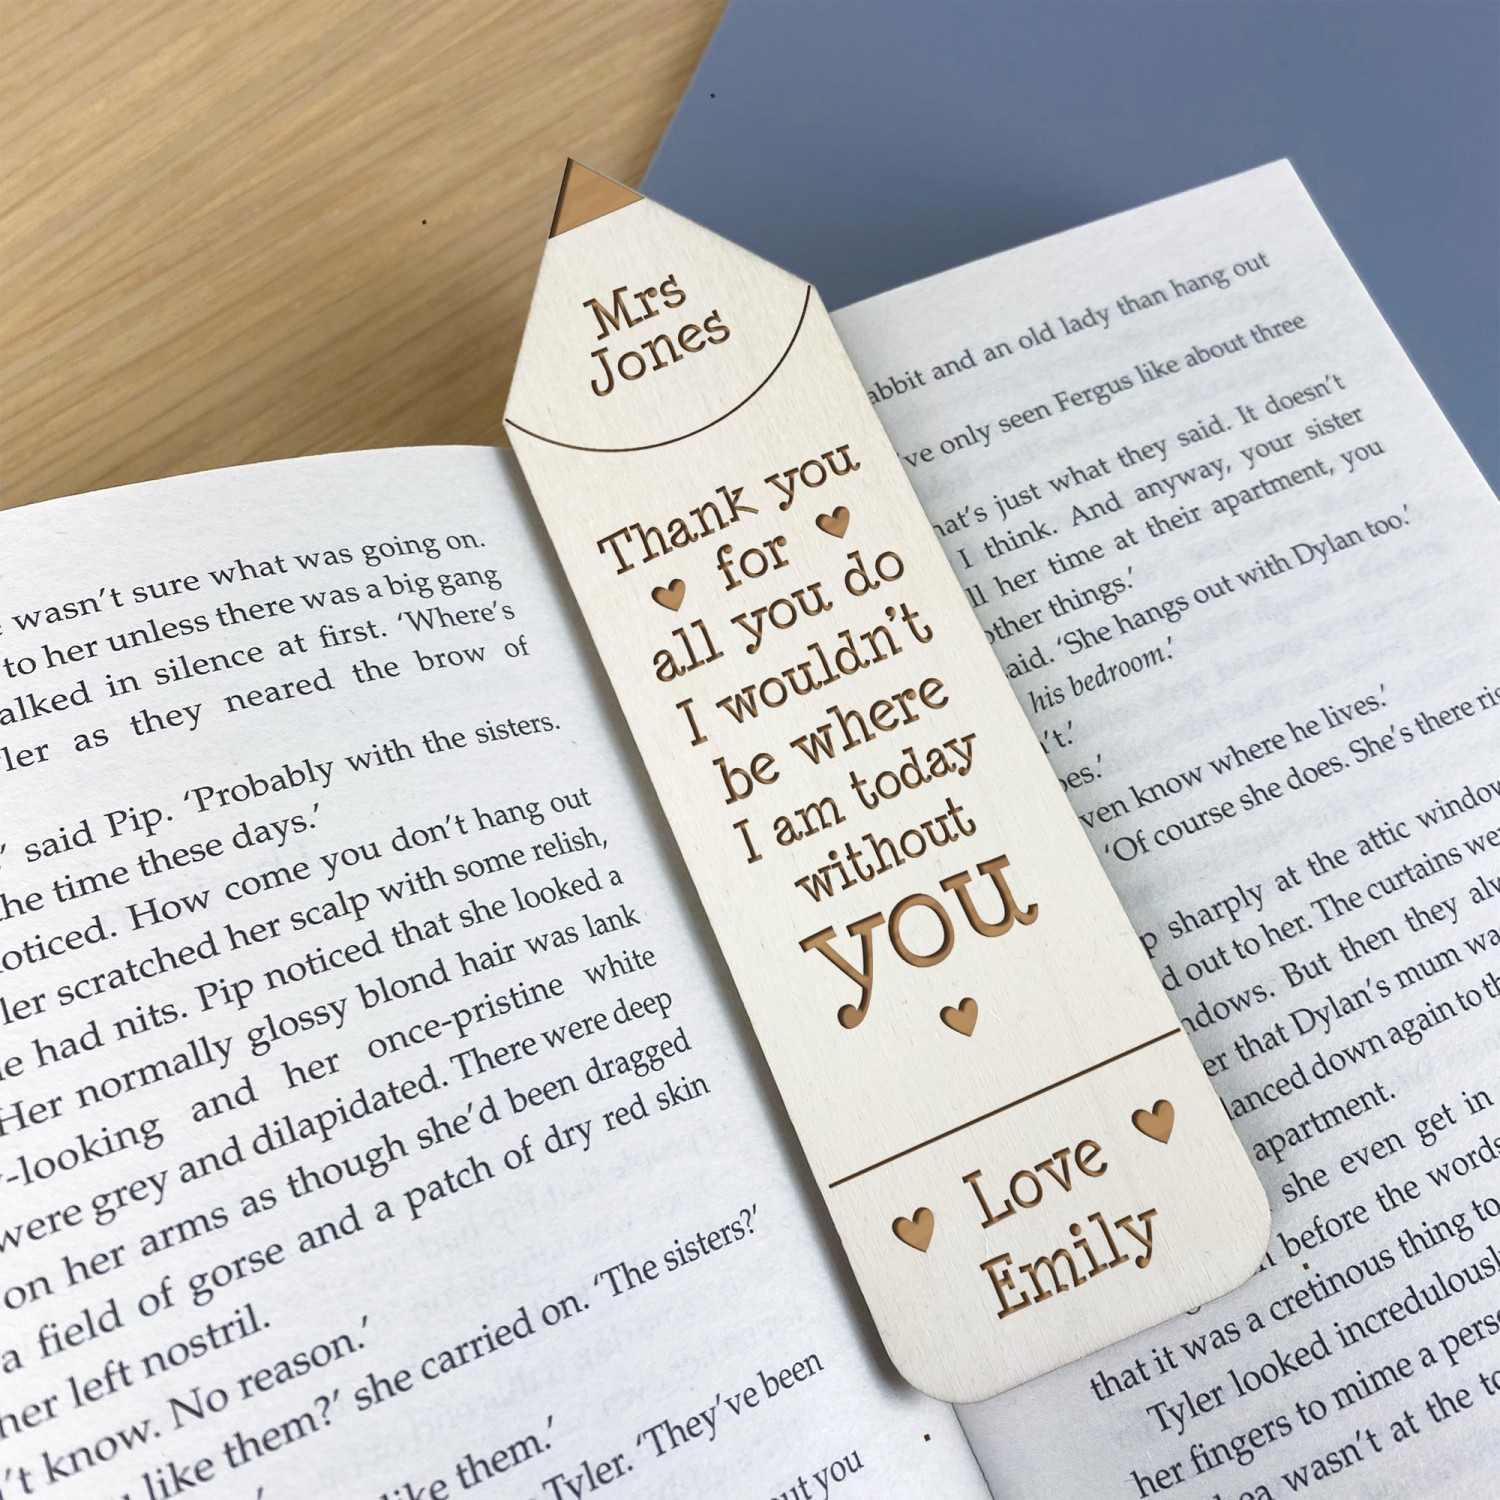 Mrs
Jones
Thank you
for
all you do
I wouldn't
be where
I am today
without
you
Love
Emily
wasn't sure what was going on.
to her unless there was a big gang
alked in silence at first. 'Where's
ler as they neared the brow of
' said Pip. 'Probably with the sisters.
he time these days.'
oticed. How come you don't hang out
ler scratched her scalp with some relish,
e had nits. Pip noticed that she looked a
Her normally glossy blond hair was lank
-looking and her once-pristine white
were grey and dilapidated. There were deep
on her arms as though she'd been dragged
a field of gorse and a patch of dry red skin
her left nostril.
't know. No reason.'
like them?' she carried on. 'The sisters?'
like them.'
Tyler. 'They've been
out you
abbit and an old lady than hang out
've only seen Fergus like about three
hat's just what they said. It doesn't
I think. And anyway, your sister
ll her time at their apartment, you
other things.'
aid. 'She hangs out with Dylan too.'
his bedroom.'
't.'
oes.'
ven know where he lives.'
'Of course she does. She's there
p sharply at the attic window
d out to her. The curtains
ndows. But then they
er that Dylan's mum
lanced down again to
apartment.
she even get in
before the words
that it was a cretinous thing to
Tyler looked incredulous
her fingers to mime a
wasn't at the